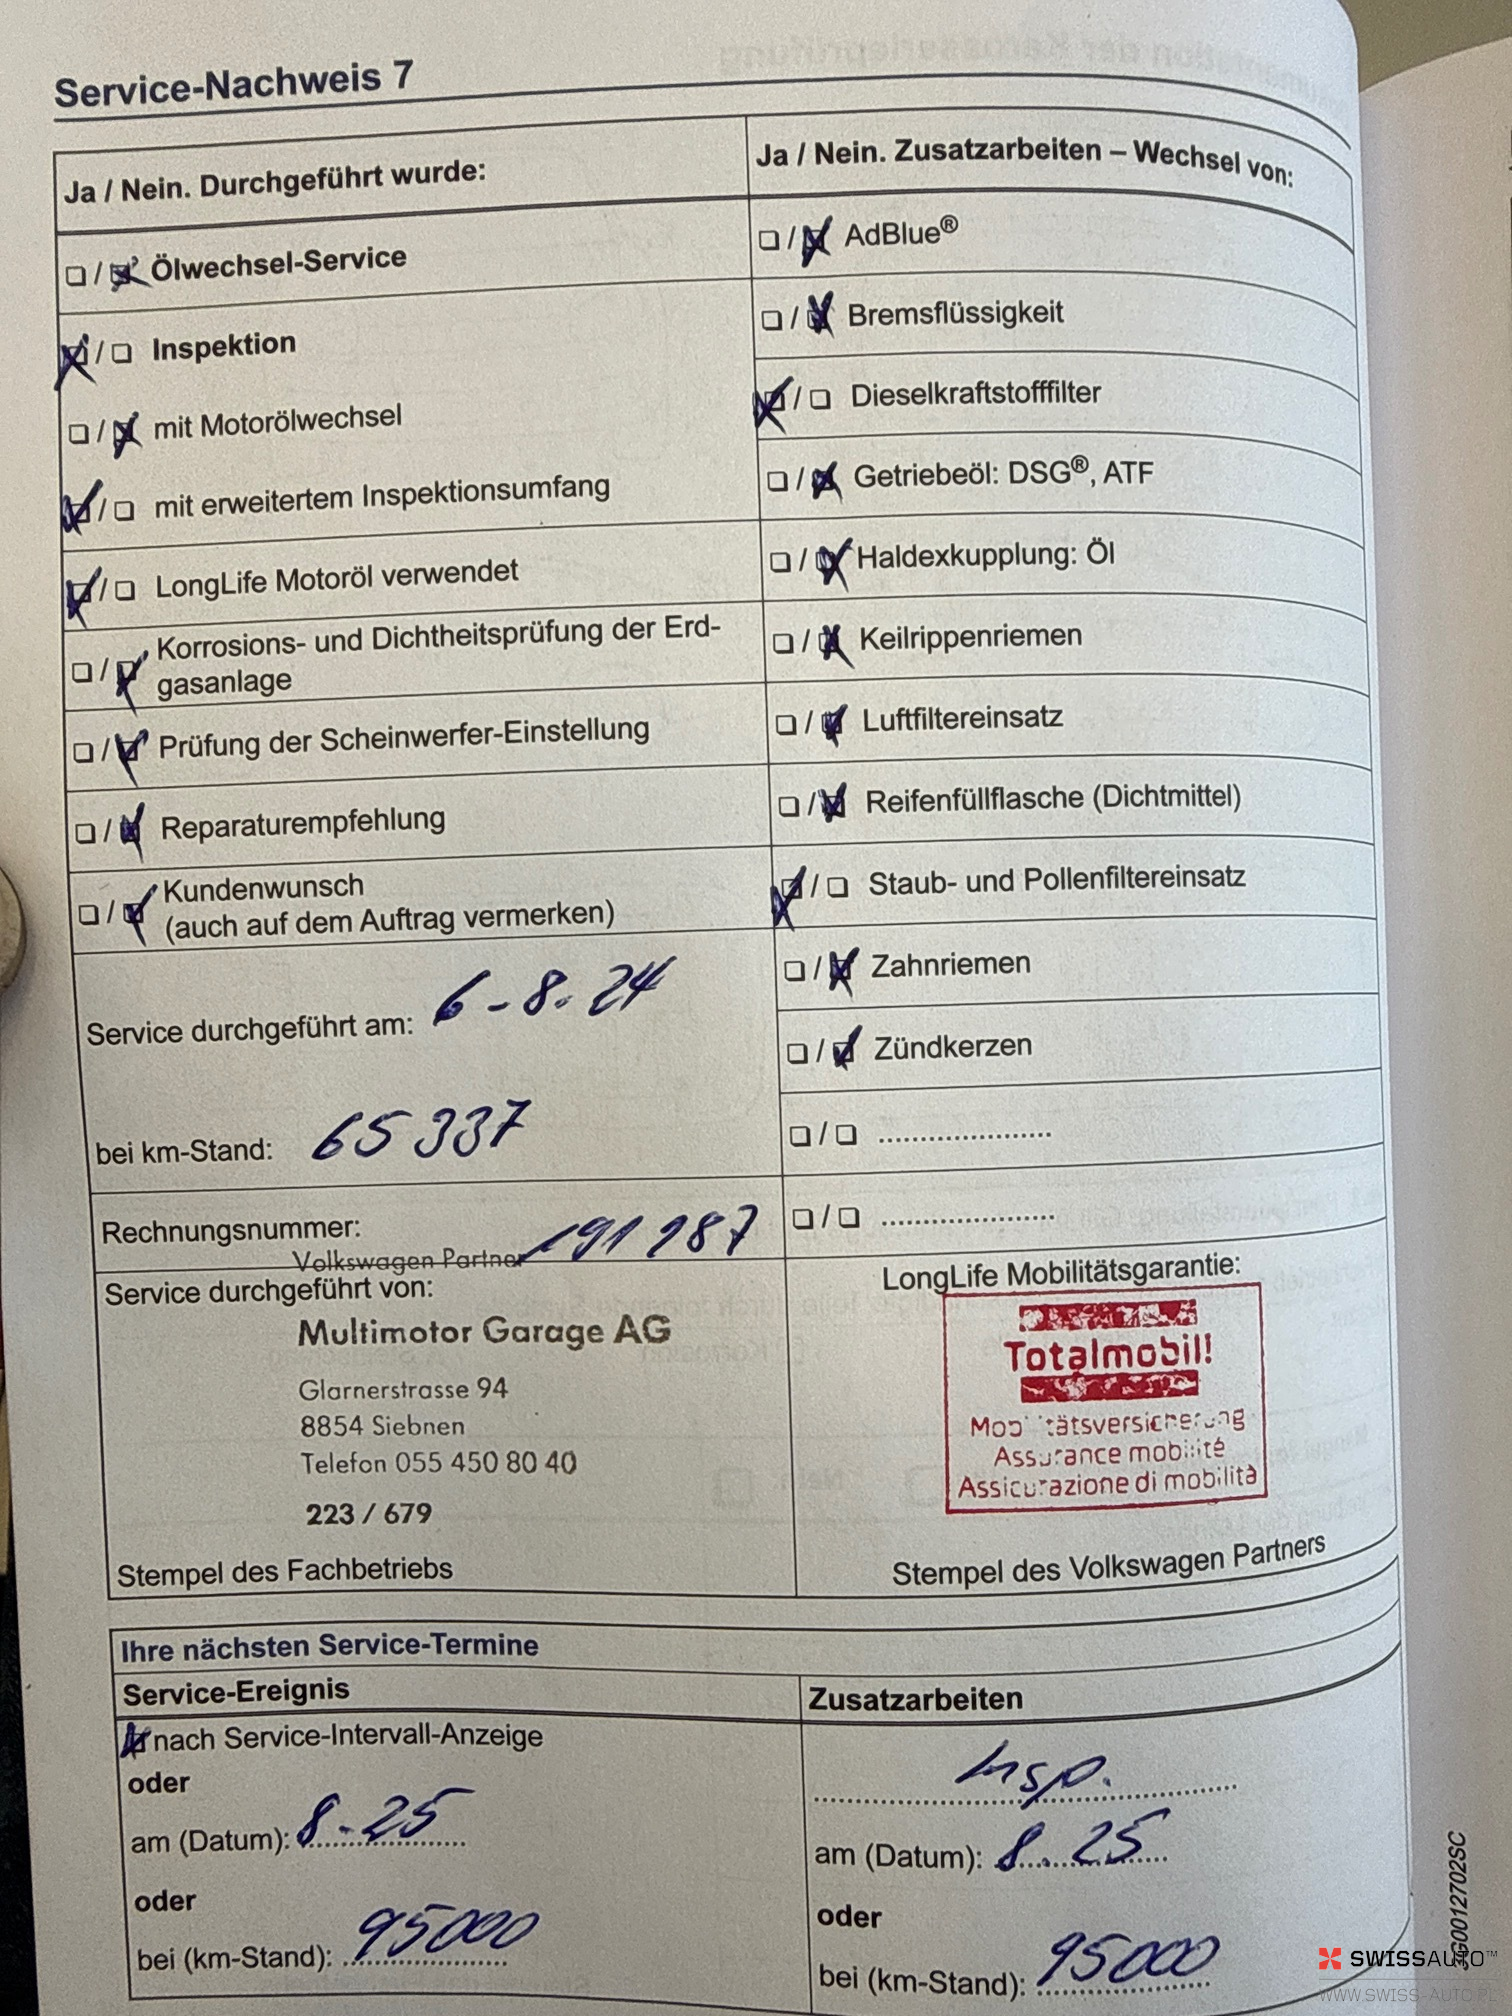 Service-Nachweis 7
Ja / Nein. Durchgeführt wurde:
☐ / ☒ Ölwechsel-Service
☒ / ☐ Inspektion
☐ / ☒ mit Motorölwechsel
☒ / ☐ mit erweitertem Inspektionsumfang
☒ / ☐ LongLife Motoröl verwendet
☐ / ☒ Korrosions- und Dichtheitsprüfung der Erd-
gasanlage
☐ / ☒ Prüfung der Scheinwerfer-Einstellung
☐ / ☒ Reparaturempfehlung
☐ / ☒ Kundenwunsch
(auch auf dem Auftrag vermerken)
Service durchgeführt am: 6-8.24
bei km-Stand: 65 337
Rechnungsnummer: 191 287
Ja / Nein. Zusatzarbeiten – Wechsel von:
☐ / ☒ AdBlue®
☐ / ☒ Bremsflüssigkeit
☒ / ☐ Dieselkraftstofffilter
☐ / ☒ Getriebeöl: DSG®, ATF
☐ / ☒ Haldexkupplung: Öl
☐ / ☒ Keilrippenriemen
☐ / ☒ Luftfiltereinsatz
☐ / ☒ Reifenfüllflasche (Dichtmittel)
☒ / ☐ Staub- und Pollenfiltereinsatz
☐ / ☒ Zahnriemen
☐ / ☒ Zündkerzen
☐ / ☐ .....................
☐ / ☐ .....................
Volkswagen Partner
Service durchgeführt von:
Multimotor Garage AG
Glarnerstrasse 94
8854 Siebnen
Telefon 055 450 80 40
223 / 679
Stempel des Fachbetriebs
LongLife Mobilitätsgarantie:
Totalmobil!
Mobilitätsversicherung
Assurance mobilité
Assicurazione di mobilità
Stempel des Volkswagen Partners
Ihre nächsten Service-Termine
Service-Ereignis
☒ nach Service-Intervall-Anzeige
oder
am (Datum): 8-25
oder
bei (km-Stand): 95000
Zusatzarbeiten
Insp.
am (Datum): 8.25
oder
bei (km-Stand): 95000
G0012702SC
SWISSAUTO™
WWW.SWISS-AUTO.PL